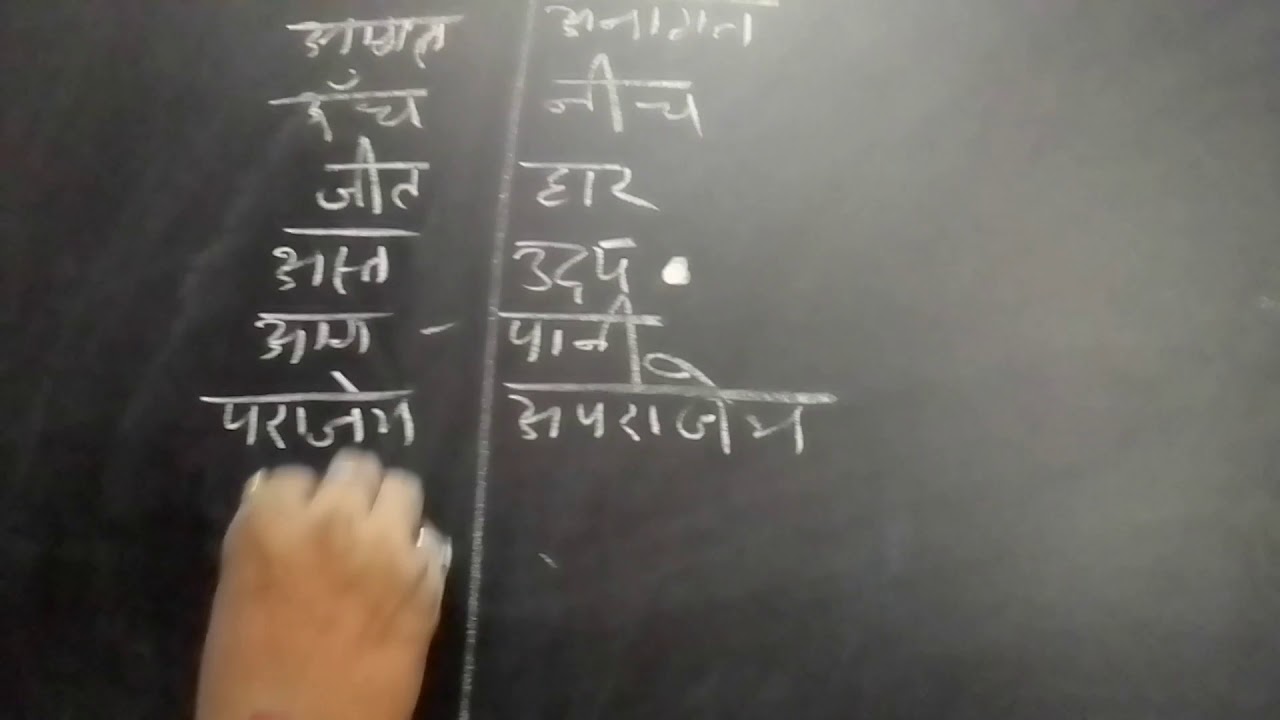 आगत अनागत
ऊँच नीच
जीत हार
अस्त उदय
आग - पानी
पराजेय अपराजेय